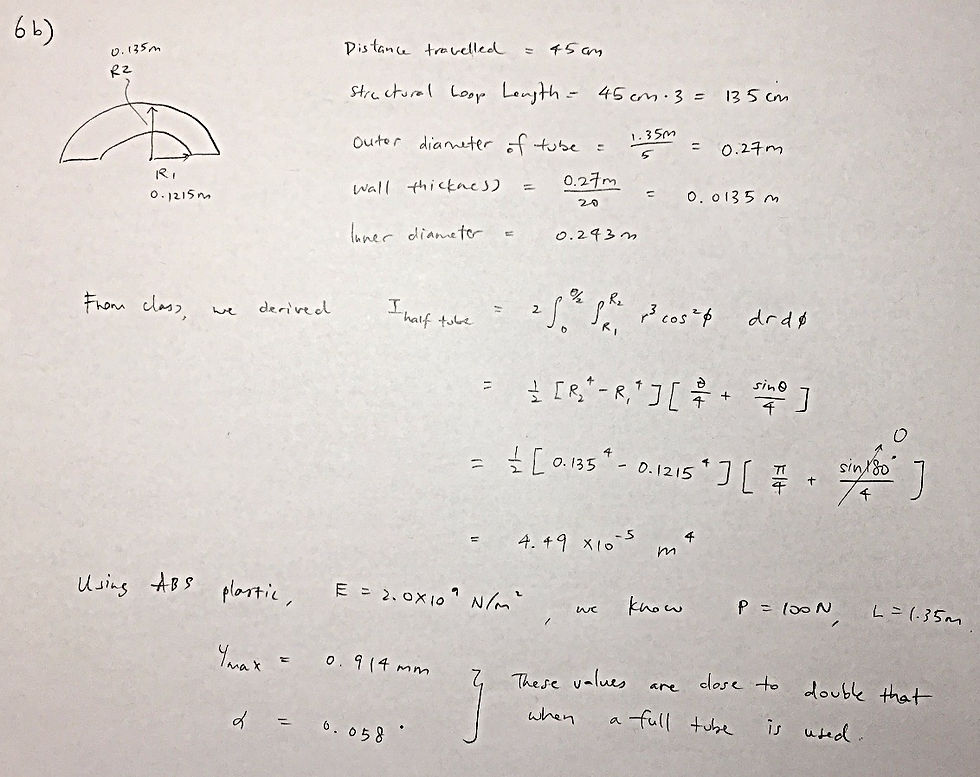 6b)
0.135m
R2
R1
0.1215m
Distance travelled = 45 cm
Structural Loop Length = 45 cm · 3 = 135 cm
Outer diameter of tube = 1.35m/5 = 0.27m
Wall thickness = 0.27m/20 = 0.0135 m
Inner diameter = 0.243 m
From class, we derived I half tube = 2 ∫₀^(θ/2) ∫_R₁^R₂ r³ cos²φ dr dφ
= 1/2 [R₂⁴ - R₁⁴] [θ/4 + sinθ/4]
= 1/2 [0.135⁴ - 0.1215⁴] [π/4 + sin180°/4] 0
= 4.49 ×10⁻⁵ m⁴
Using ABS plastic, E = 2.0×10⁹ N/m², we know P = 100N, L = 1.35m.
Ymax = 0.914 mm
α = 0.058°
} These values are close to double that
when a full tube is used.